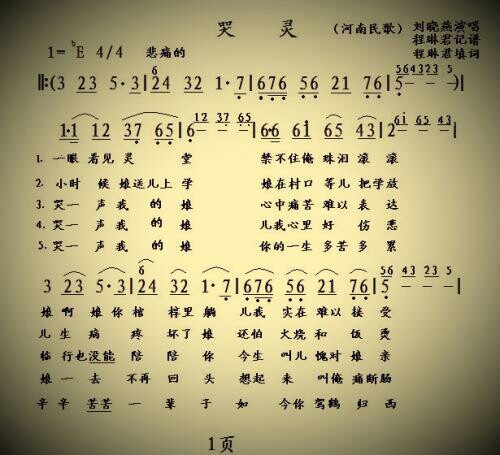 哭 灵
(河南民歌) 刘晓燕演唱
1= ᵇE 4/4 悲痛的 程琳君记谱
程琳君填词
‖:(3 23 5·3|24 32 1·7|676 56 21 76|5 - - -)|
5643235
1·1 12 37 65|6 - - -|6·6 61 65 43|2 - - -|
1. 一眼看见灵 堂 禁不住俺 珠泪 滚 滚
2. 小时 候 娘送儿上 学 娘在村口 等儿 把学放
3. 哭一 声我 的 娘 心中痛苦 难以 表 达
4. 哭一 声我 的 娘 儿我心里 好 伤 悲
5. 哭一 声我 的 娘 你的一生 多苦 多 累
3 23 5·3|24 32 1·7|676 56 21 76|5 - - -|
娘 啊 娘你 棺 椁里 躺 儿我 实在 难以 接 受
儿生 病 疼 坏了 娘 还怕 火烧 和 饭 烫
临行也没能 陪 陪 你 今生 叫儿 愧对 娘 亲
娘一 去 不再 回 头 想起 来 叫俺 痛断肠
辛辛 苦苦 一 辈 子 如 今你 驾鹤 归 西
1页